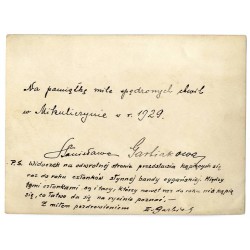 Na pamiątkę mile spędzonych chwil
w Mikuliczynie w r. 1929.
Stanisława Garlickowa
P.S. Widoczek na odwrotnej stronie przedstawia kąpiących się
raz do roku członków słynnej bandy cygańskiej. Między
tymi członkami są i tacy, którzy nawet raz do roku nie kąpią
się, co łatwo da się na rycinie poznać.
Z miłem pozdrowieniem